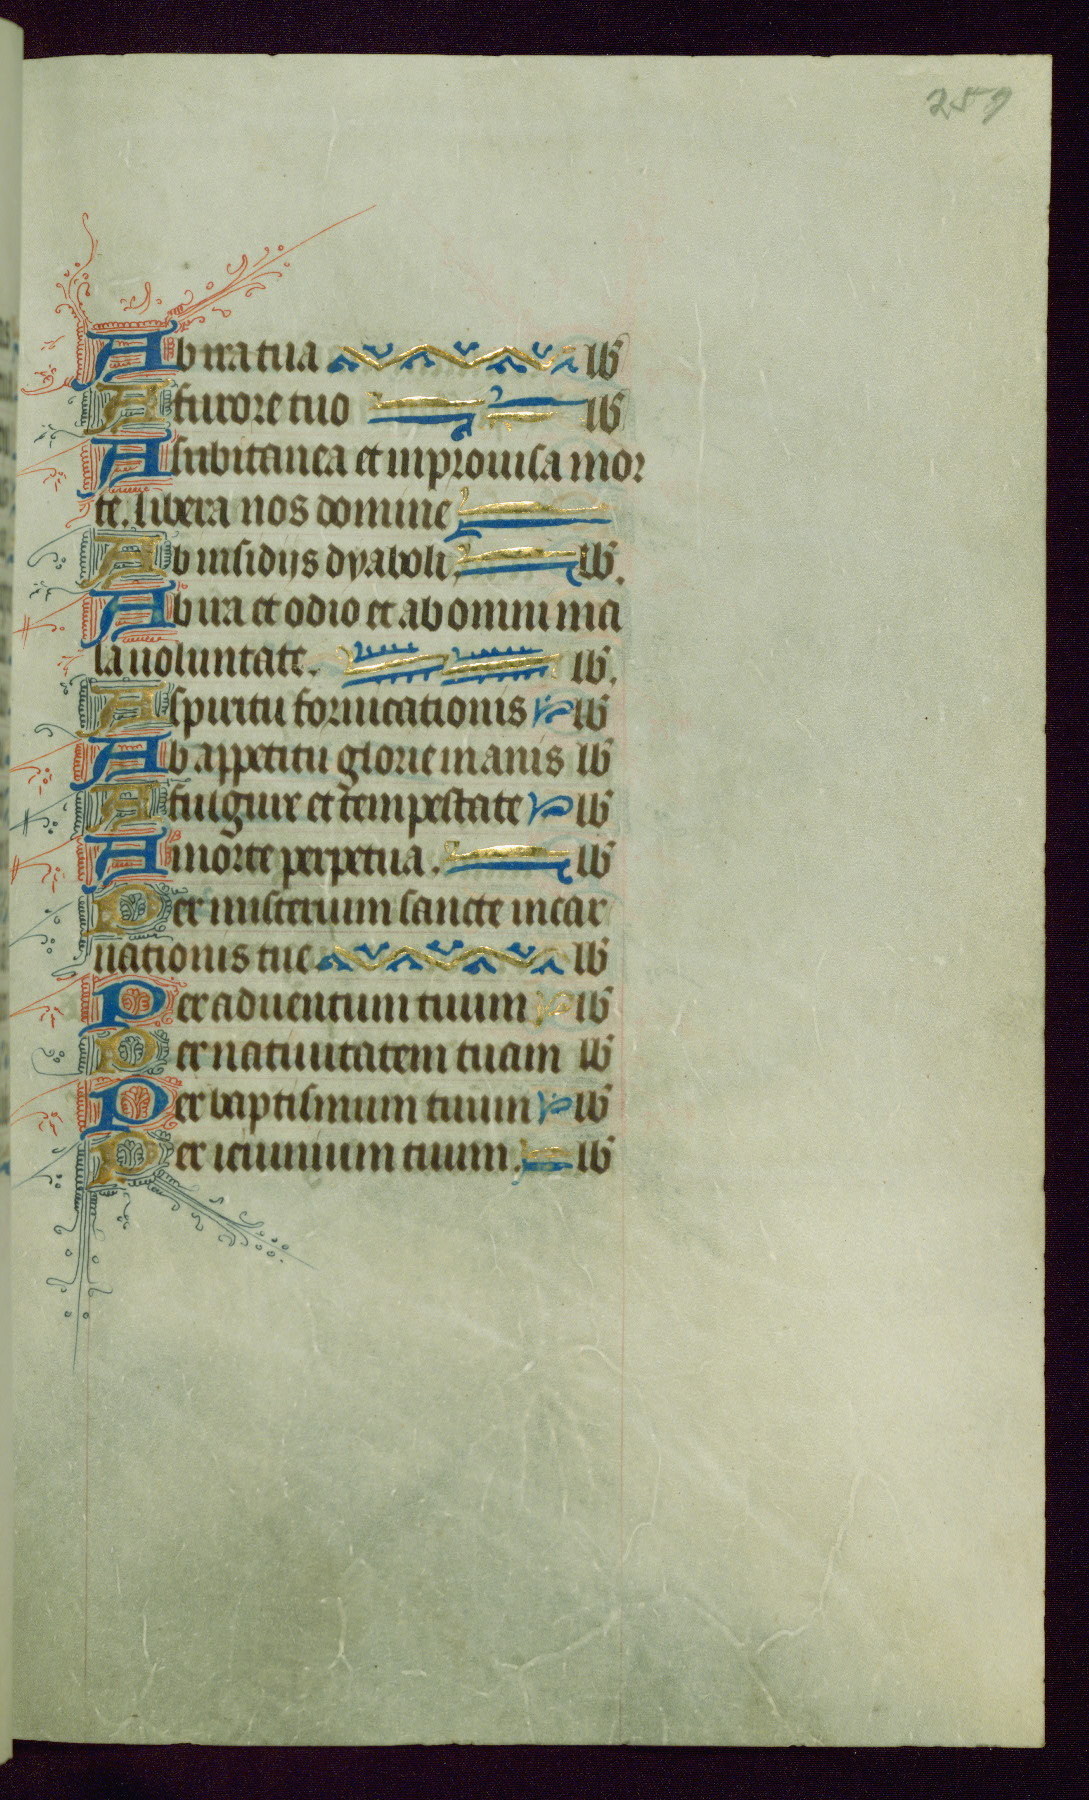 259
Ab ira tua lib
A furore tuo lib
A subitanea et inprouisa mor
te. libera nos domine
Ab insidijs dyaboli. lib.
Ab ira et odio et ab omni ma
la uoluntate. lib.
A spiritu fornicationis lib
Ab appetitu glorie inanis lib
A fulgure et tempestate lib
A morte perpetua. lib
Per misterium sancte incar
nationis tue lib
Per aduentum tuum lib
Per natiuitatem tuam lib
Per baptismum tuum lib
Per ieiunium tuum. lib